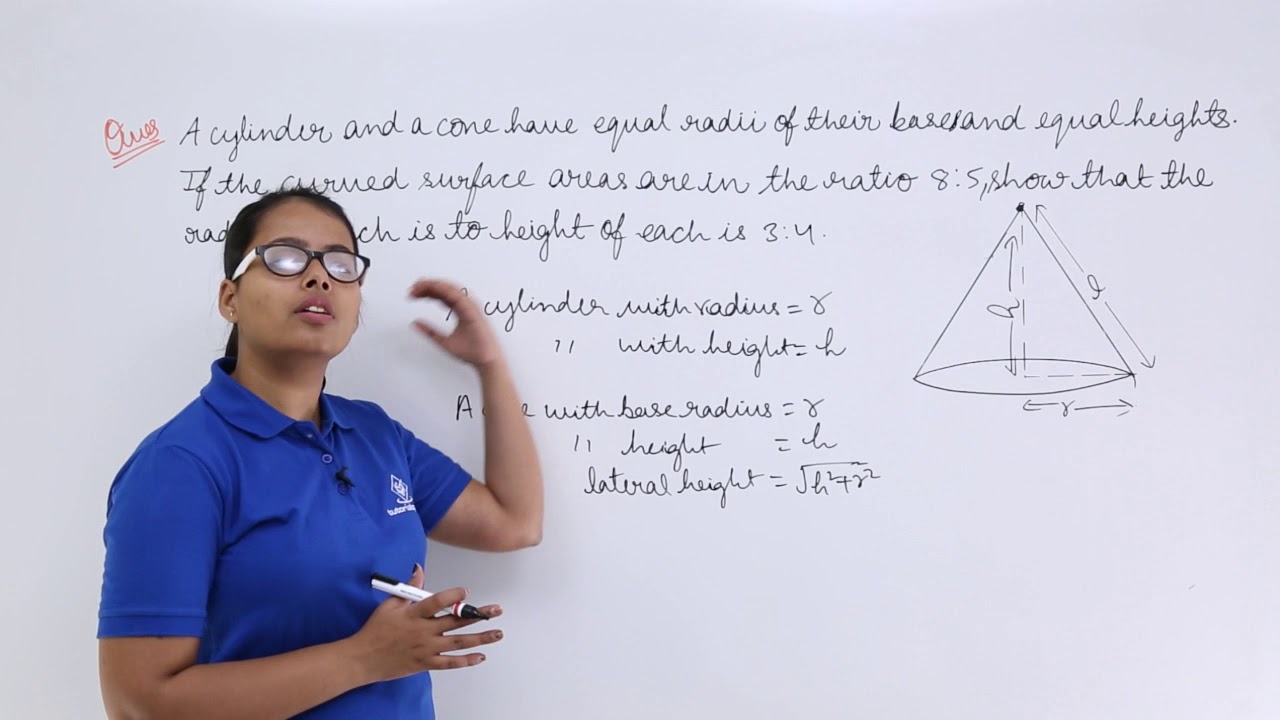 Ques A cylinder and a cone have equal radii of their bases and equal heights.
If the curved surface areas are in the ratio 8:5, show that the
is to height of each is 3:4.
A cylinder with radius = r
" with height = h
A with base radius = r
" height = h
lateral height = √h²+r²
h
l
r